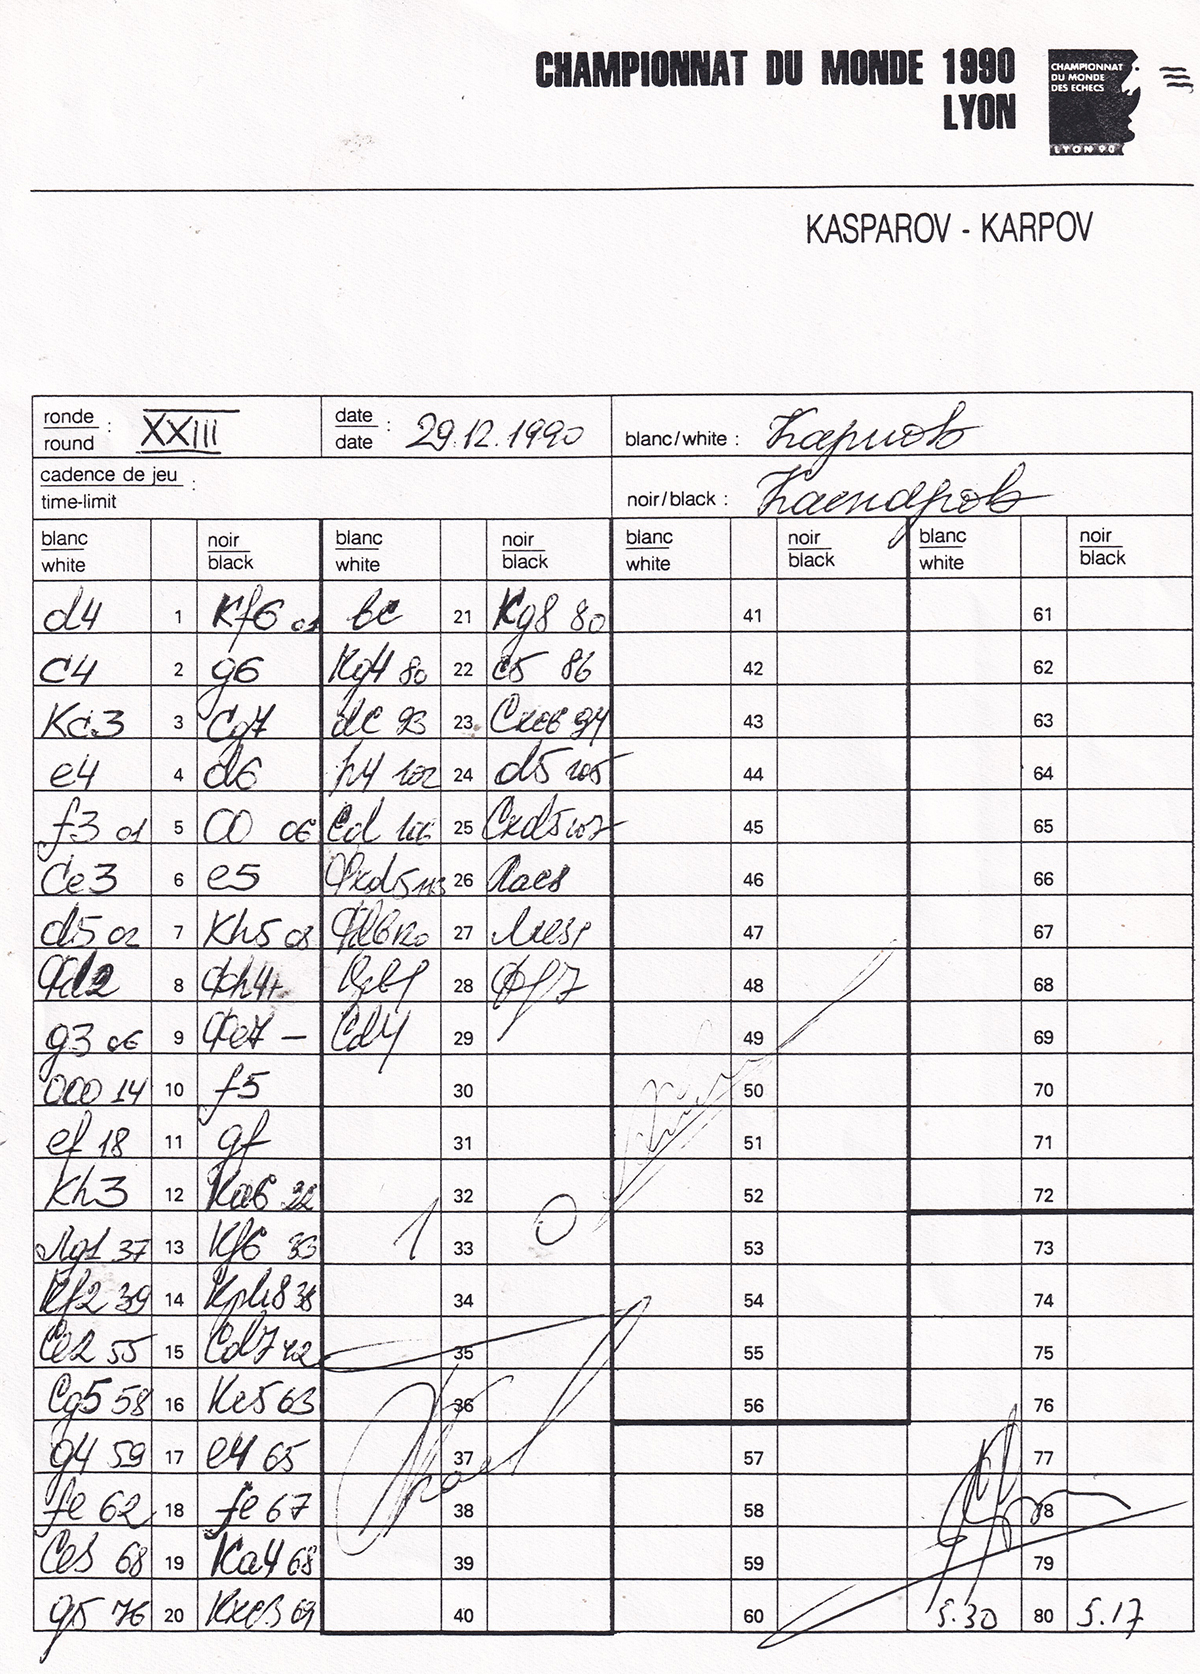 CHAMPIONNAT DU MONDE 1990
LYON
CHAMPIONNAT
DU MONDE
DES ECHECS
LYON 90
KASPAROV - KARPOV
ronde : XXIII date : 29.12.1990 blanc/white : Карпов
round date
cadence de jeu : noir/black : Каспаров
time-limit
blanc noir blanc noir blanc noir blanc noir
white black white black white black white black
d4 1 Kf6 01 bc 21 Kg8 80 41 61
c4 2 g6 Kg4 80 22 c5 86 42 62
Kc3 3 Cg7 dc 93 23 94 43 63
e4 4 d6 h4 102 24 d5 105 44 64
f3 01 5 OO 06 Cd 106 25 Cxd5 107 45 65
Ce3 6 e5 Фxd5 113 26 Лae8 46 66
d5 02 7 Kh5 08 27 47 67
Фd2 8 Фh4+ 28 Фf7 48 68
g3 06 9 Фe7 – Cd4 29 49 69
OOO 14 10 f5 30 50 70
ef 18 11 gf 31 51 71
Kh3 12 Ka6 22 32 52 72
Лg1 37 13 Kf6 33 1 0 33 53 73
Kf2 39 14 Kph8 38 34 54 74
Ce2 55 15 Cd7 42 35 55 75
Cg5 58 16 Kc5 63 36 56 76
g4 59 17 e4 65 37 57 77
fe 62 18 fe 67 38 58 78
68 19 Ka4 68 39 59 79
g5 76 20 Kxc3 69 40 60 5.30 80 5.17